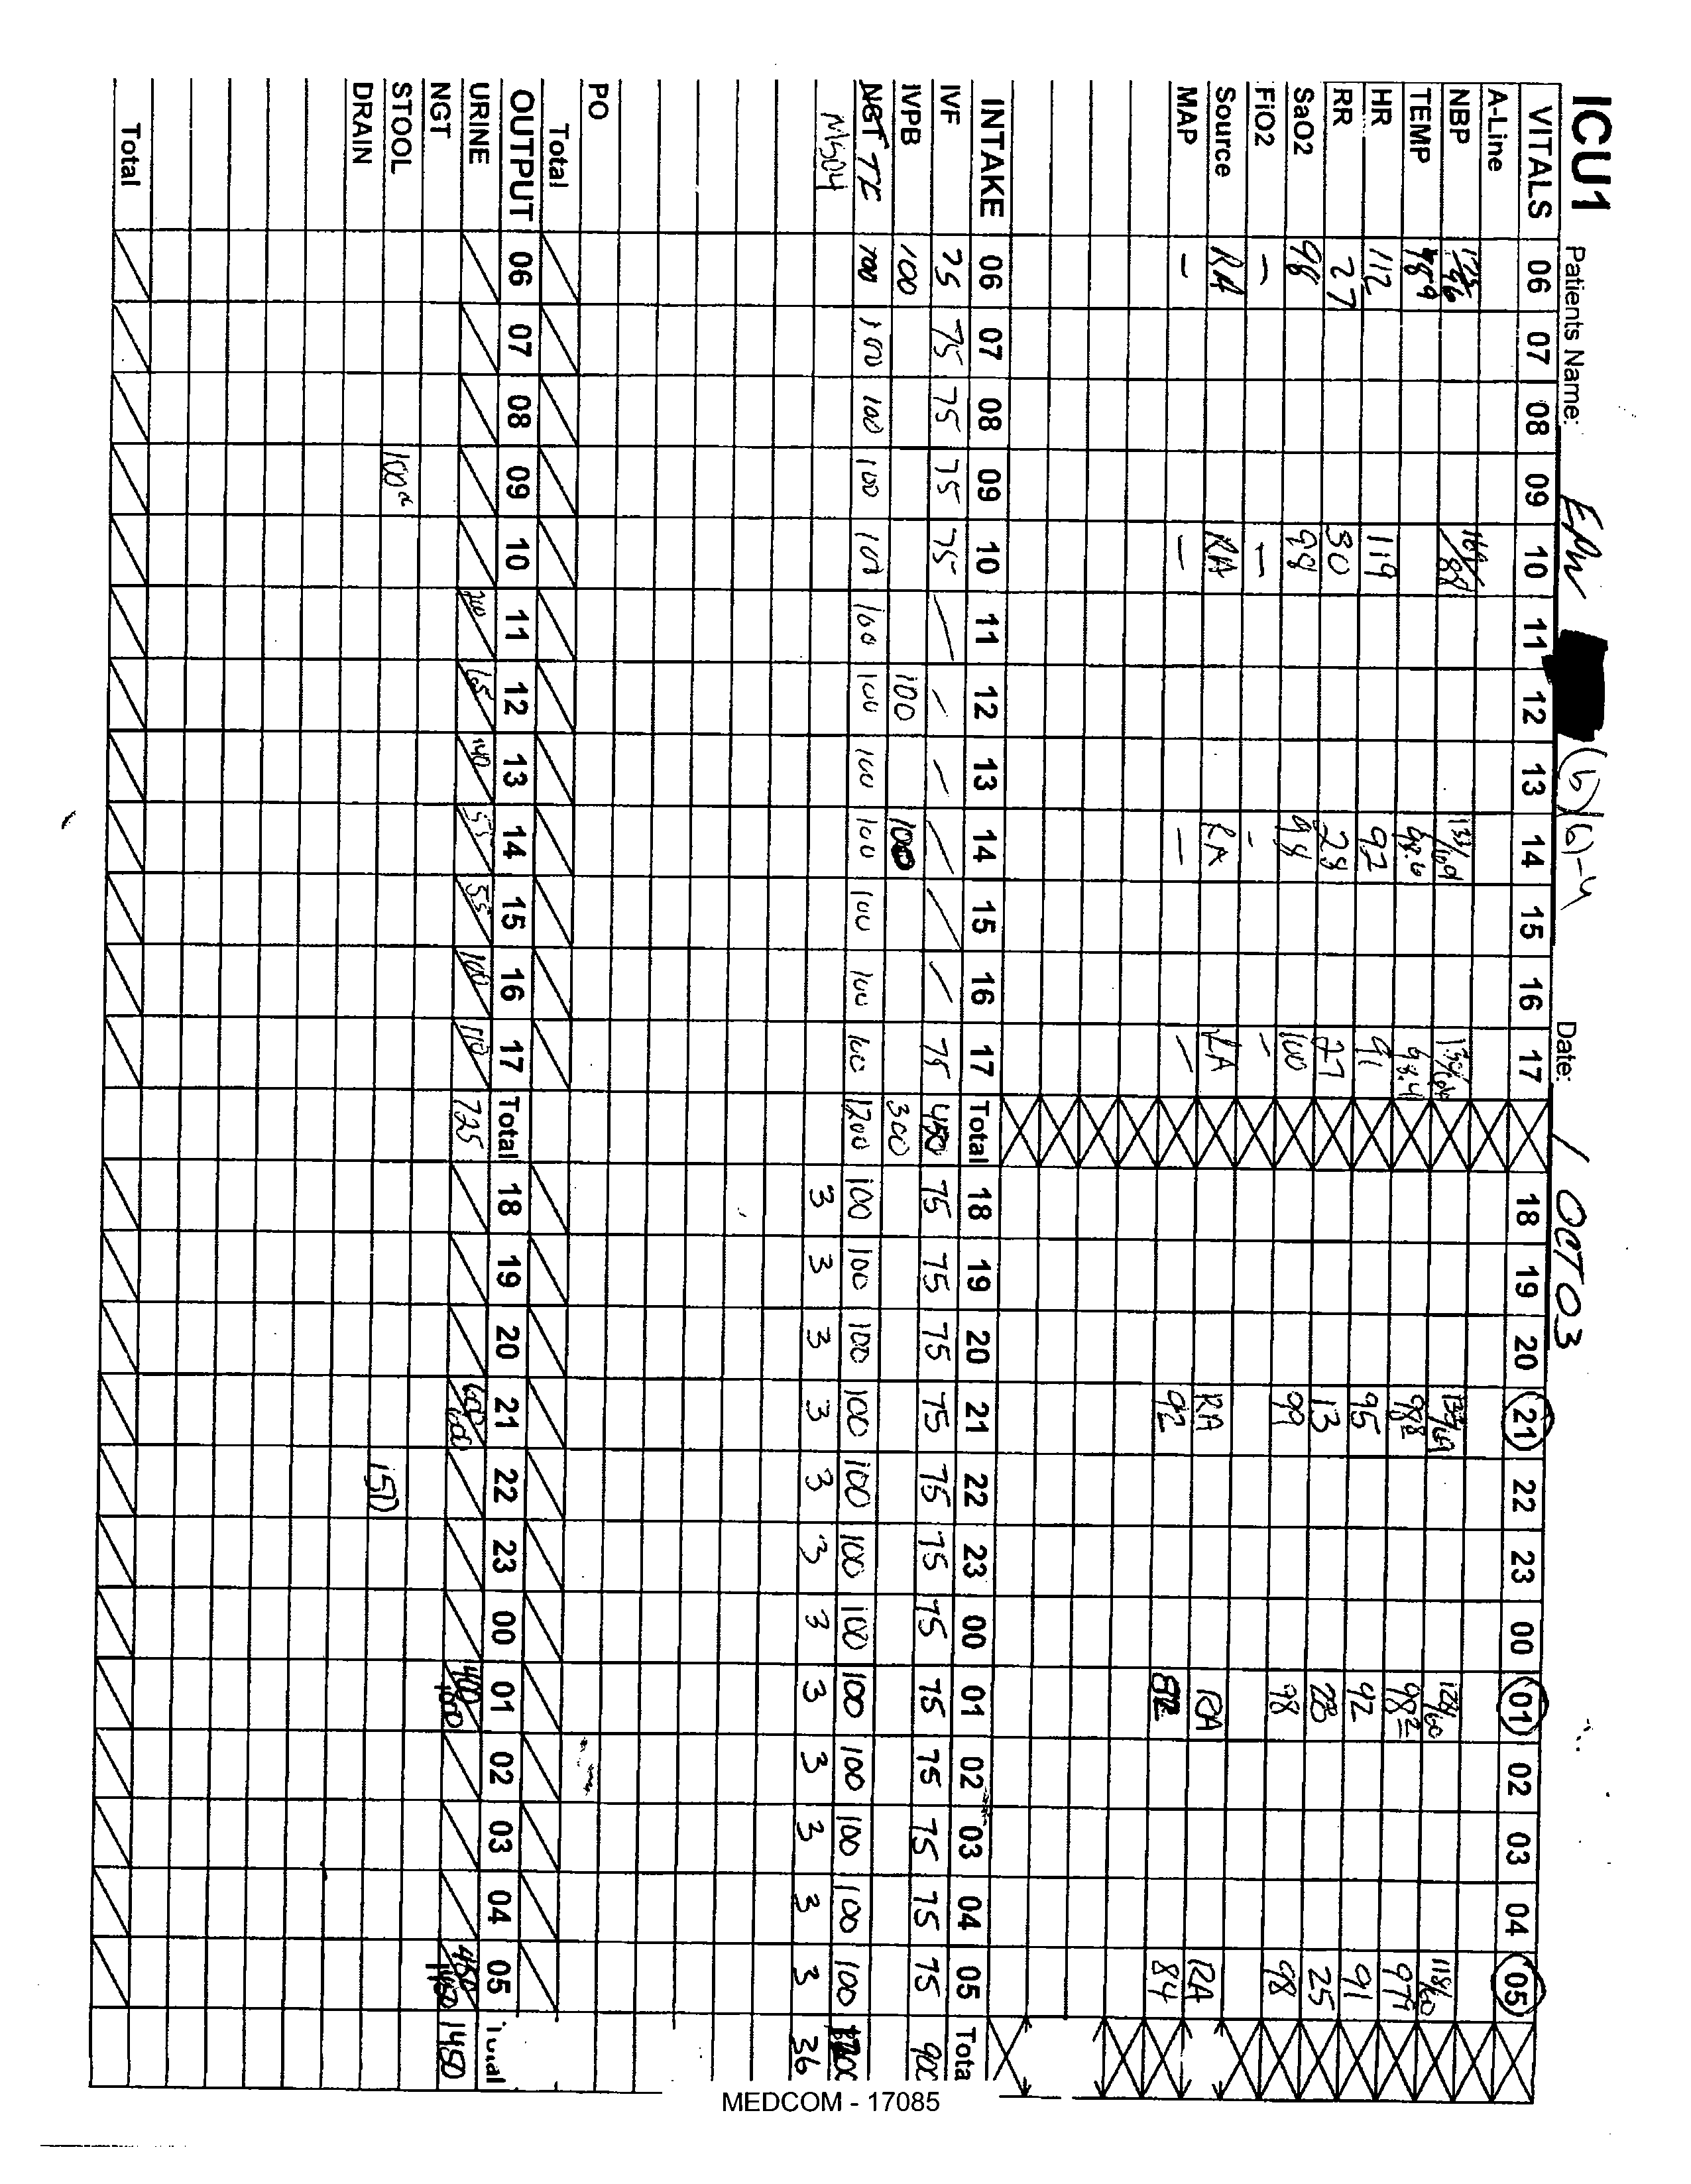 ICU1 Patients Name: EPW (b)(6)-4 Date: 1 OCT 03
VITALS 06 07 08 09 10 11 12 13 14 15 16 17 18 19 20 21 22 23 00 01 02 03 04 05
A-Line
NBP 133/69 118/60
TEMP 98.9 98.6 98.4 98.8 98.2 97.9
HR 112 119 92 91 95 92 91
RR 27 30 28 27 13 28 25
SaO2 98 99 99 100 99 98 98
FiO2 - - - -
Source RA RA RA RA RA RA RA
MAP - - - - 92 82 84
INTAKE 06 07 08 09 10 11 12 13 14 15 16 17 Total 18 19 20 21 22 23 00 01 02 03 04 05 Tota
IVF 75 75 75 75 75 / / / / / / 75 450 75 75 75 75 75 75 75 75 75 75 75 75 900
IVPB 100 100 100 300
NGT TF 100 100 100 100 100 100 100 100 100 100 100 100 1200 100 100 100 100 100 100 100 100 100 100 100 100 1200
MSO4 3 3 3 3 3 3 3 3 3 3 3 3 36
PO
Total
OUTPUT 06 07 08 09 10 11 12 13 14 15 16 17 Total 18 19 20 21 22 23 00 01 02 03 04 05 Total
URINE 200 165 140 55 55 100 110 725 600/600 400/1000 450/1450 1450
NGT
STOOL 100 150
DRAIN
Total
MEDCOM - 17085